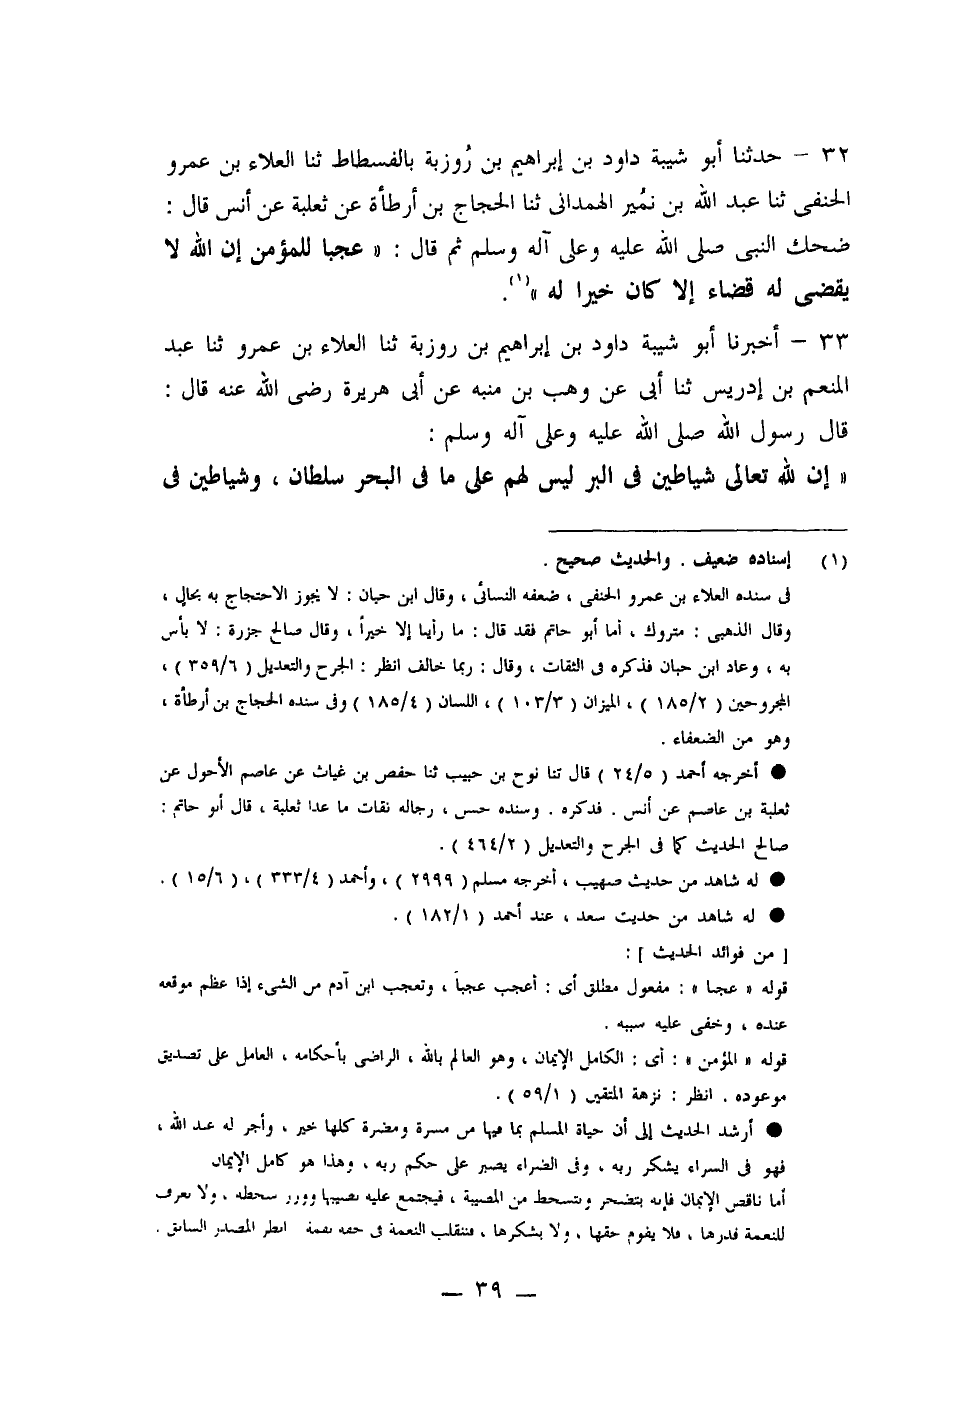 ٣٢ – حدثنا أبو شيبة داود بن إبراهيم بن رُوزبة بالفسطاط ثنا العلاء بن عمرو
الحنفى ثنا عبد الله بن نمُير الهمدانى ثنا الحجاج بن أرطأة عن ثعلبة عن أنس قال :
ضحك النبى صلى الله عليه وعلى آله وسلم ثم قال : « عجبا للمؤمن إن الله لا
يقضى له قضاء إلا كان خيرا له »(١).
٣٣ – أخبرنا أبو شيبة داود بن إبراهيم بن روزبة ثنا العلاء بن عمرو ثنا عبد
المنعم بن إدريس ثنا أبى عن وهب بن منبه عن أبى هريرة رضى الله عنه قال :
قال رسول الله صلى الله عليه وعلى آله وسلم :
« إن لله تعالى شياطين فى البر ليس لهم على ما فى البحر سلطان ، وشياطين فى
(١) إسناده ضعيف . والحديث صحيح .
فى سنده العلاء بن عمرو الحنفى ، ضعفه النسائى ، وقال ابن حبان : لا يجوز الاحتجاج به بحال ،
وقال الذهبى : متروك ، أما أبو حاتم فقد قال : ما رأينا إلا خيراً ، وقال صالح جزرة : لا بأس
به ، وعاد ابن حبان فذكره فى الثقات ، وقال : ربما خالف انظر : الجرح والتعديل ( ٣٥٩/٦ ) ،
المجروحين ( ١٨٥/٢ ) ، الميزان ( ١٠٣/٣ ) ، اللسان ( ١٨٥/٤ ) وفى سنده الحجاج بن أرطأة ،
وهو من الضعفاء .
● أخرجه أحمد ( ٢٤/٥ ) قال ثنا نوح بن حبيب ثنا حفص بن غياث عن عاصم الأحول عن
ثعلبة بن عاصم عن أنس . فذكره . وسنده حسن ، رجاله ثقات ما عدا ثعلبة ، قال أبو حاتم :
صالح الحديث كما فى الجرح والتعديل ( ٤٦٤/٢ ) .
● له شاهد من حديث صهيب ، أخرجه مسلم ( ٢٩٩٩ ) ، وأحمد ( ٣٣٣/٤ ) ، ( ١٥/٦ ) .
● له شاهد من حديث سعد ، عند أحمد ( ١٨٢/١ ) .
[ من فوائد الحديث ] :
قوله « عجبا » : مفعول مطلق أى : أعجب عجباً ، وتعجب ابن آدم من الشىء إذا عظم موقعه
عنده ، وخفى عليه سببه .
قوله « المؤمن » : أى : الكامل الإيمان ، وهو العالم بالله ، الراضى بأحكامه ، العامل على تصديق
موعوده . انظر : نزهة المتقين ( ٥٩/١ ) .
● أرشد الحديث إلى أن حياة المسلم بما فيها من مسرة ومضرة كلها خير ، وأجر له عند الله ،
فهو فى السراء يشكر ربه ، وفى الضراء يصبر على حكم ربه ، وهذا هو كامل الإيمان
أما ناقص الإيمان فإنه يتضجر ويتسخط من المصيبة ، فيجتمع عليه نصيبها ووزر سخطه ، ولا يعرف
للنعمة قدرها ، فلا يقوم حقها ، ولا يشكرها ، فتنقلب النعمة فى حقه نقمة انظر المصدر السابق .
— ٣٩ —